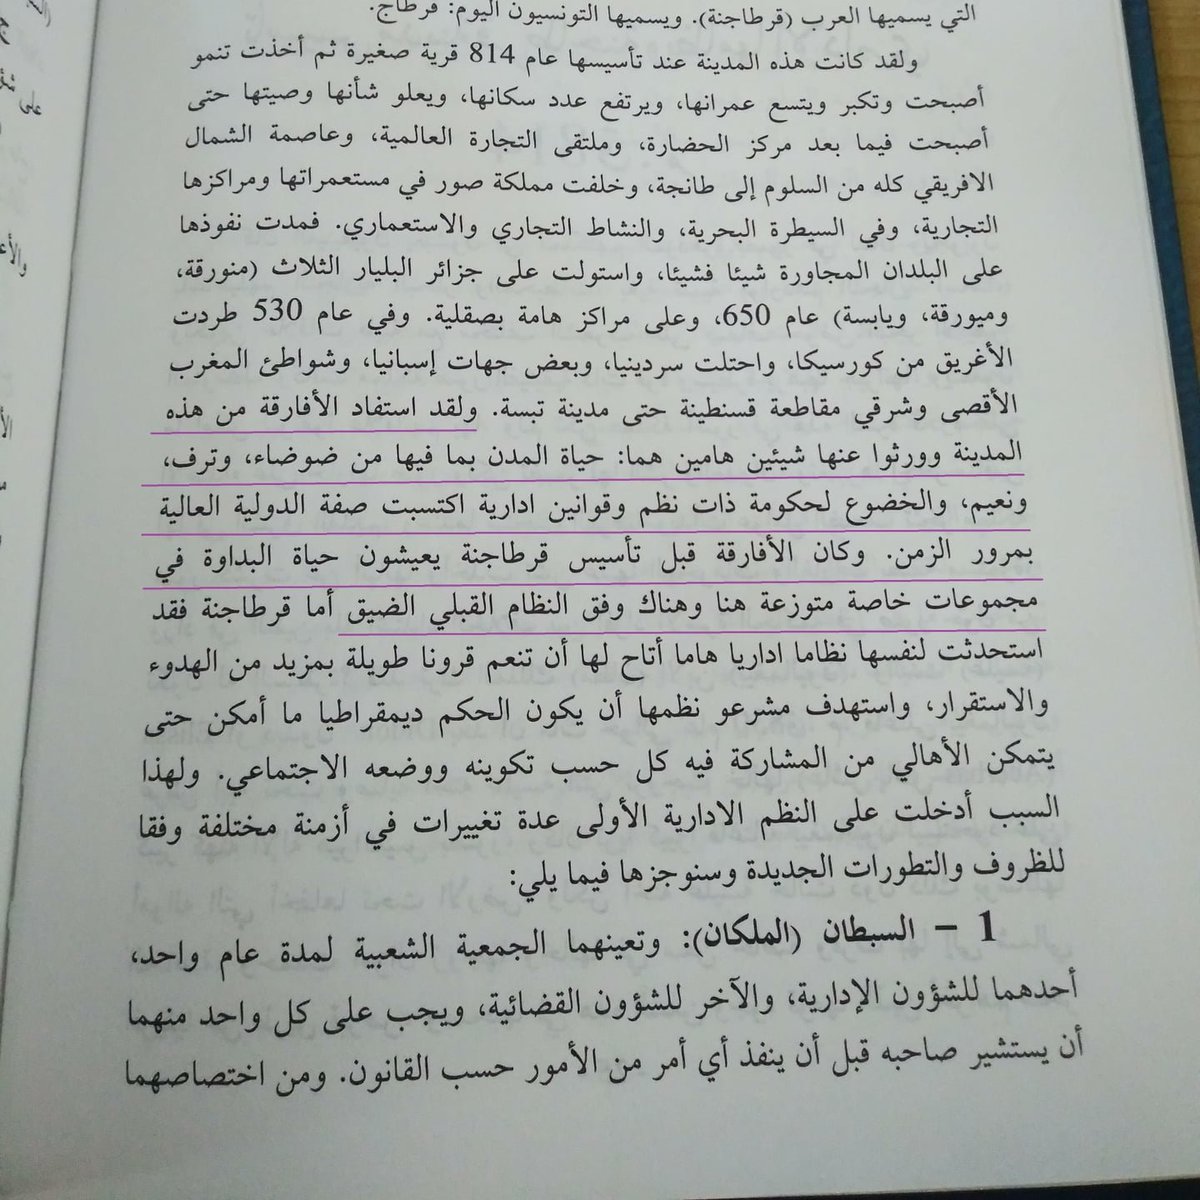 التي يسميها العرب (قرطاجنة). ويسميها التونسيون اليوم: قرطاج.
ولقد كانت هذه المدينة عند تأسيسها عام 814 قرية صغيرة ثم أخذت تنمو
أصبحت وتكبر ويتسع عمرانها، ويرتفع عدد سكانها، ويعلو شأنها وصيتها حتى
أصبحت فيما بعد مركز الحضارة، وملتقى التجارة العالمية، وعاصمة الشمال
الافريقي كله من السلوم إلى طانجة، وخلفت مملكة صور في مستعمراتها ومراكزها
التجارية، وفي السيطرة البحرية، والنشاط التجاري والاستعماري. فمدت نفوذها
على البلدان المجاورة شيئا فشيئا، واستولت على جزائر البليار الثلاث (منورقة،
وميورقة، ويابسة) عام 650، وعلى مراكز هامة بصقلية. وفي عام 530 طردت
الأغريق من كورسيكا، واحتلت سردينيا، وبعض جهات إسبانيا، وشواطئ المغرب
الأقصى وشرقي مقاطعة قسنطينة حتى مدينة تبسة. ولقد استفاد الأفارقة من هذه
المدينة وورثوا عنها شيئين هامين هما: حياة المدن بما فيها من ضوضاء، وترف،
ونعيم، والخضوع لحكومة ذات نظم وقوانين ادارية اكتسبت صفة الدولية العالية
بمرور الزمن. وكان الأفارقة قبل تأسيس قرطاجنة يعيشون حياة البداوة في
مجموعات خاصة متوزعة هنا وهناك وفق النظام القبلي الضيق أما قرطاجنة فقد
استحدثت لنفسها نظاما اداريا هاما أتاح لها أن تنعم قرونا طويلة بمزيد من الهدوء
والاستقرار، واستهدف مشرعو نظمها أن يكون الحكم ديمقراطيا ما أمكن حتى
يتمكن الأهالي من المشاركة فيه كل حسب تكوينه ووضعه الاجتماعي. ولهذا
السبب أدخلت على النظم الادارية الأولى عدة تغييرات في أزمنة مختلفة وفقا
للظروف والتطورات الجديدة وسنوجزها فيما يلي:
1 – السبطان (الملكان): وتعينهما الجمعية الشعبية لمدة عام واحد،
أحدهما للشؤون الإدارية، والآخر للشؤون القضائية، ويجب على كل واحد منهما
أن يستشير صاحبه قبل أن ينفذ أي أمر من الأمور حسب القانون. ومن اختصاصهما